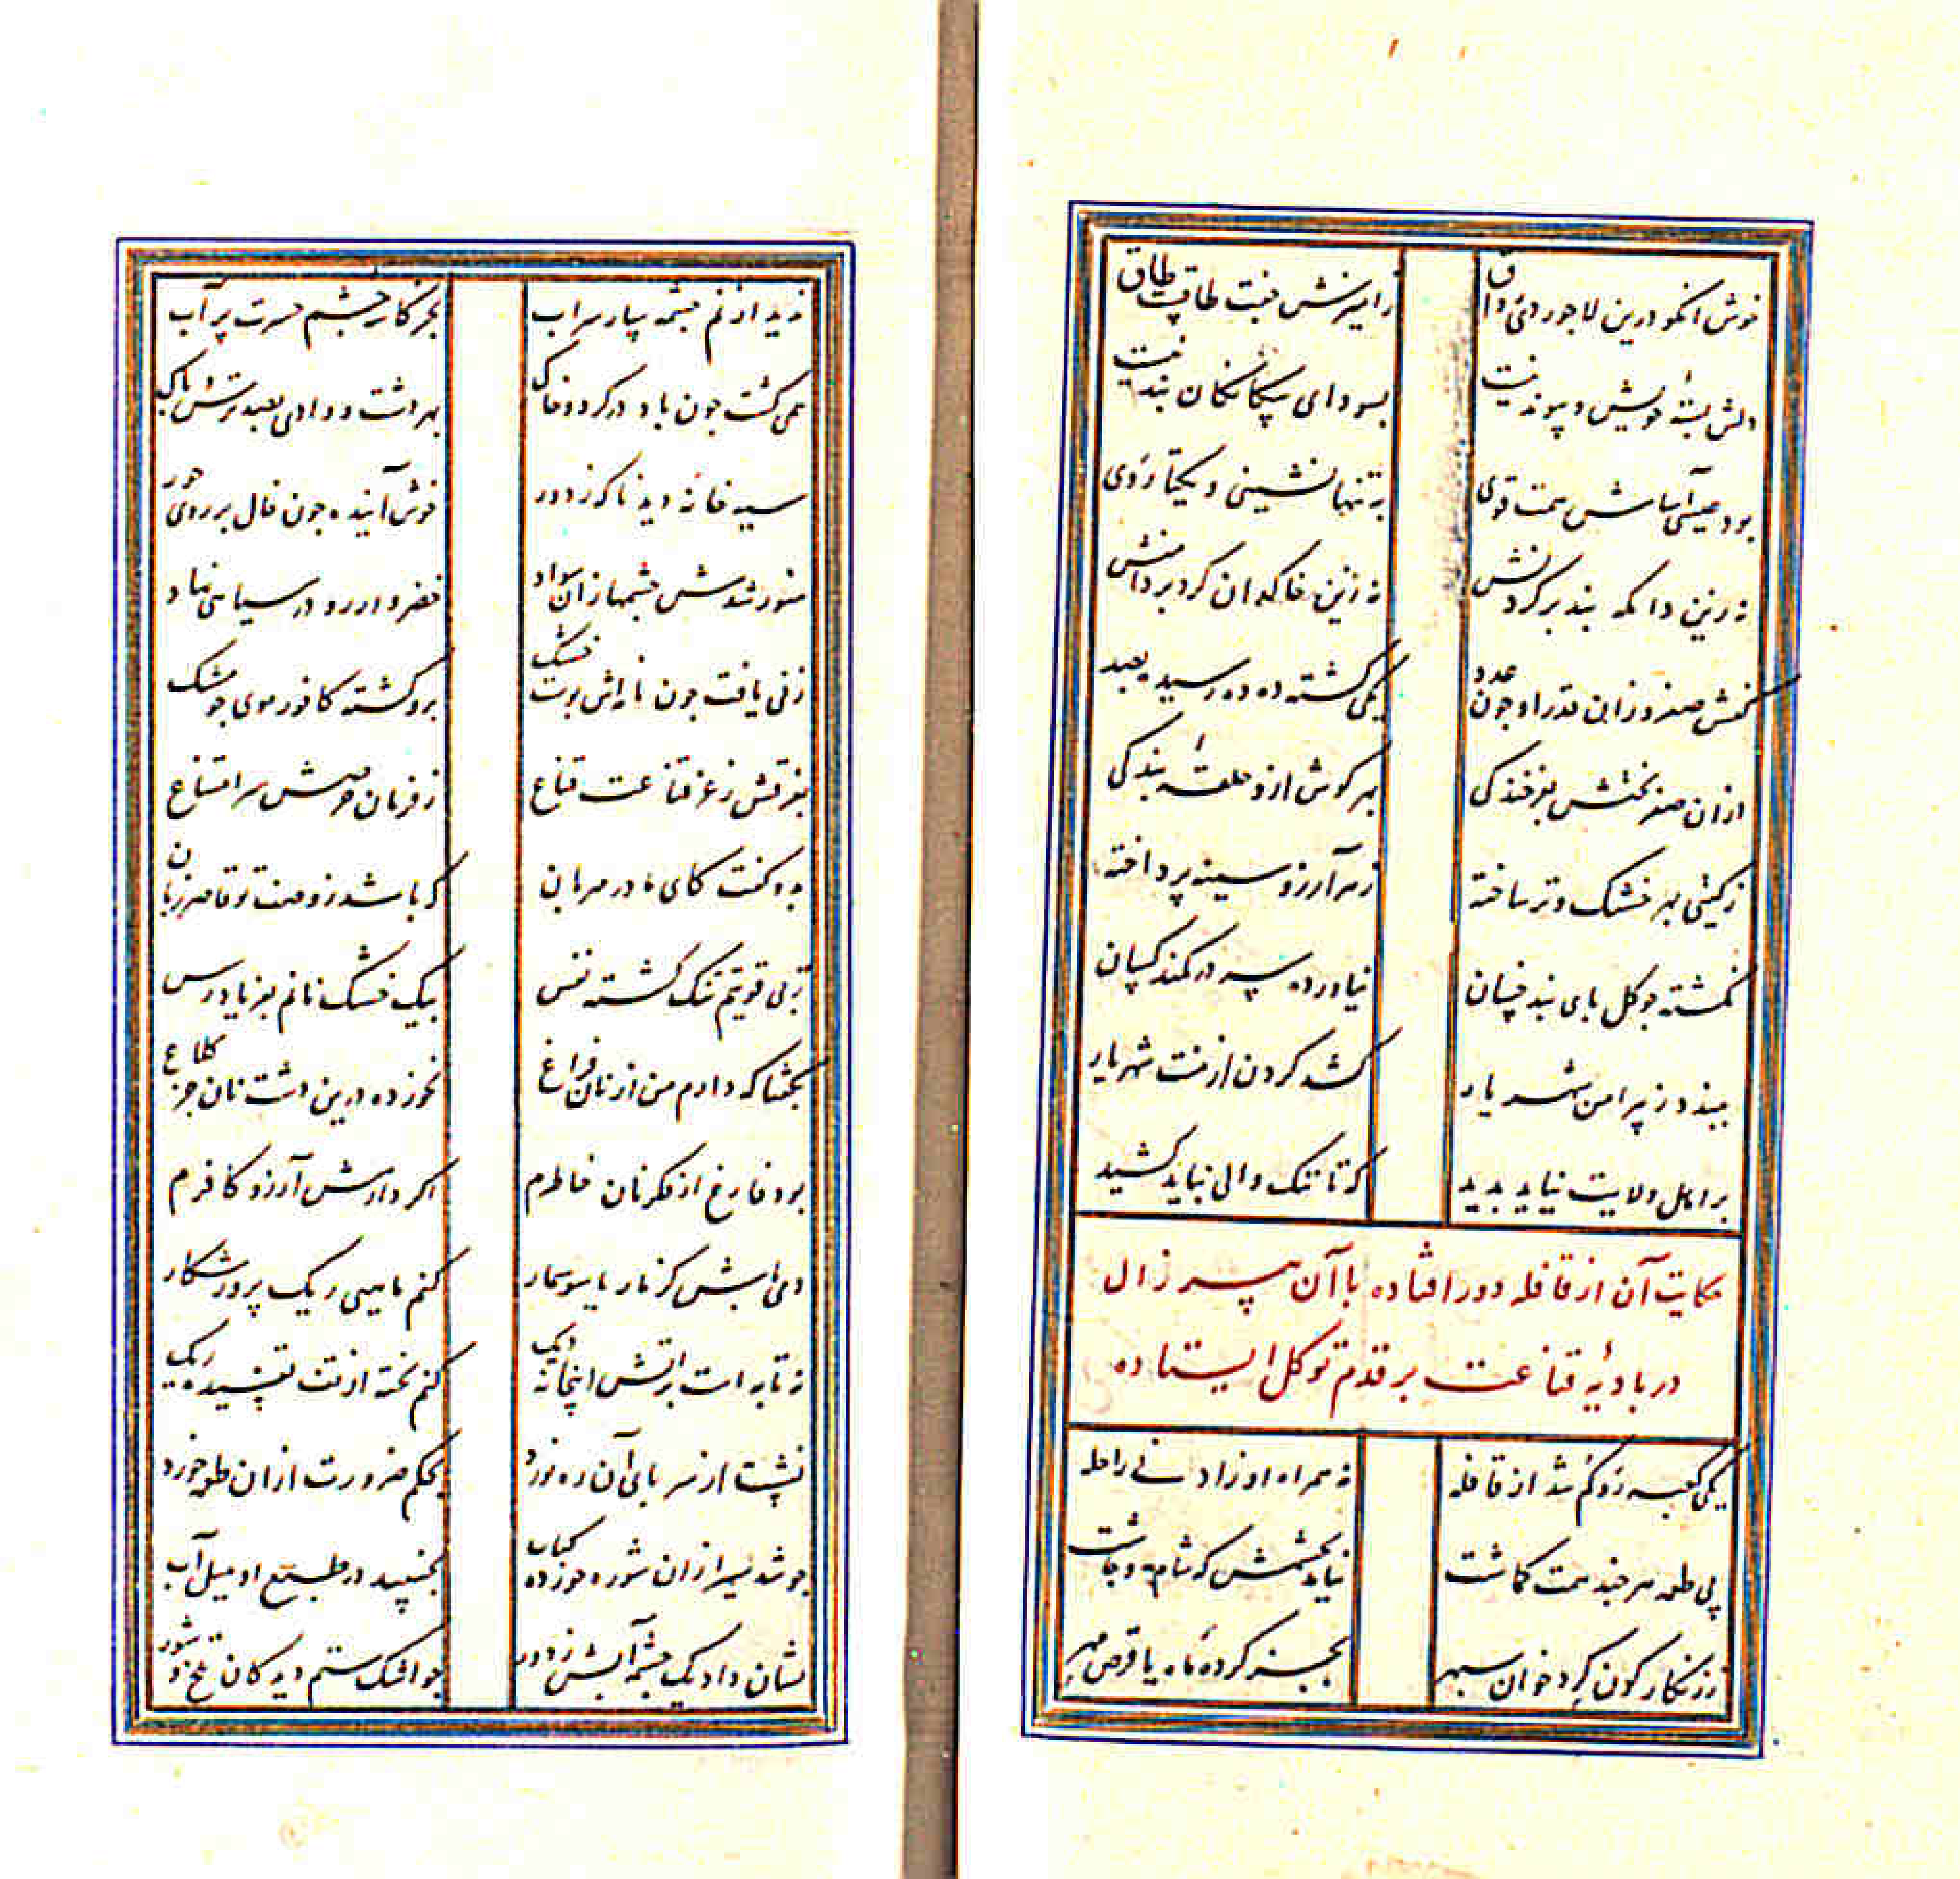 خوش آنکو درین لاجوردی رواق ز آمیزش جفت طاقست طاق
دلش بستهٔ خویش و پیوند نیست بسودای بیگانگان بند نیست
بود عیسی آساش همت قوی به تنها نشینی و یکتا روی
نه زین دامکه بند بر گردنش نه زین خاکدان گرد بر دامنش
کفش صفر وز آن قدر او چون عدد یکی گشته ده ده رسیده بصد
از آن صفر بختش بفرخندگی بهر گوش ازو حلقهٔ بندگی
ز گیتی بهر خشک و تر ساخته ز هر آرزو سینه پرداخته
نگشته چو گل پای بند خسان نیاورده سر در کمند کسان
ببندد ز پیرامن شهریار کشد گردن از منت شهریار
بر اهل ولایت نیاید پدید که تا تنگ والی نباید کشید
حکایت آن از قافله دور افتاده با آن پیر زال
در بادیهٔ قناعت بر قدم توکل ایستاده
یکی کعبه رو گم شد از قافله نه همراه او زاد نی راحله
پی طعمه هر چند همت گماشت نیامد بچشمش که شام و چاشت
ز زنگارگون گرد خوان سپهر بجز گردهٔ ماه یا قرص مهر
ندید از نم چشمه سار سراب بجز کاسهٔ چشم حسرت پر آب
همی گشت چون باد در گرد و خاک بهر دشت و وادی بصد ترس و باک
سیه خانهٔ دید ناگه ز دور خوش آینده چون خال بر روی حور
منور شدش چشمها زان سواد خضروار رو در سیاهی نهاد
زنی یافت چون نافه‌اش پوست خشک برو گشته کافور موی چو مشک
بفرقش ز عز قناعت قناع ز فرمان حرصش سر امتناع
بدو گفت کای مادر مهربان که باشد ز وصفت تو قاصر زبان
ز بی قوتیم تنگ گشته نفس بیک خشک نانم بفریاد رس
بگفتا که دارم من از نان فراغ نخورده درین دشت نان جز کلاغ
بود فارغ از فکر نان خاطرم اگر دارمش آرزو کافرم
دمی باش کز مار یا سوسمار کنم ماهیی ریگ پرور شکار
نه تابه است بر آتش اینجا نه دیگ کنم پخته از تفت تفسیده ریگ
نشست از سر پای آن ره نورد بحکم ضرورت از آن طعمه خورد
چو شد سیر از آن شوره خورده کباب بجنبید در طبع او میل آب
نشان داد یک چشمه آبش ز دور چو اشک ستم دیدکان تلخ و شور